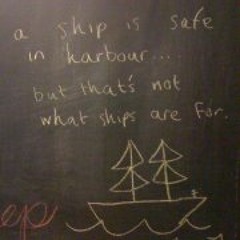 a ship is safe
in harbour....
but that's not
what ships are for.
ep